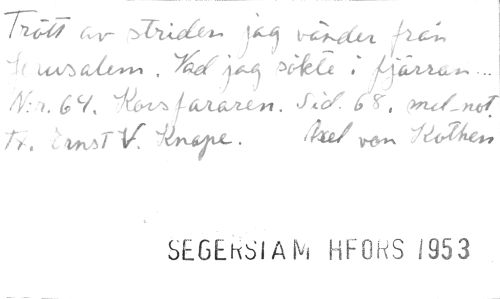 Trött av striden jag vänder från
Jerusalem. Vad jag sökte i fjärran...
N:r. 64. Korsfararen. Sid. 68. mel-not.
Tx. Ernst V. Knape. Axel von Kothen
SEGERSTAM HFORS 1953